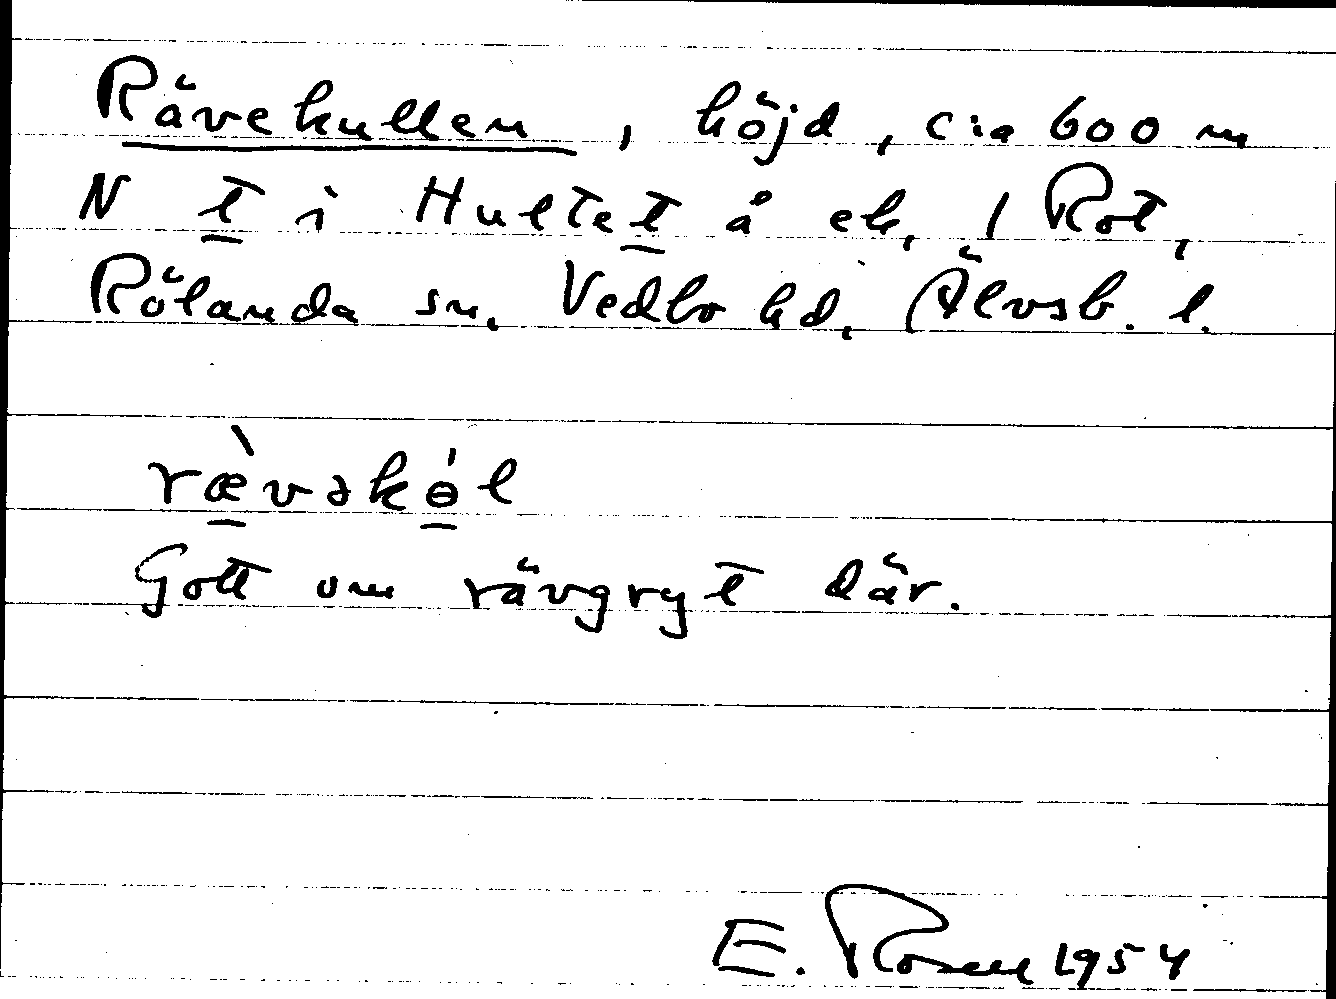 Rävekullen, höjd, c:a 600 m
N t i Hultet å ek, 1 Rot,
Rölanda sn. Vedbo hd, Älvsb. l.
rævəkɵl
Gott om rävgryt där.
E. Rosell 1954